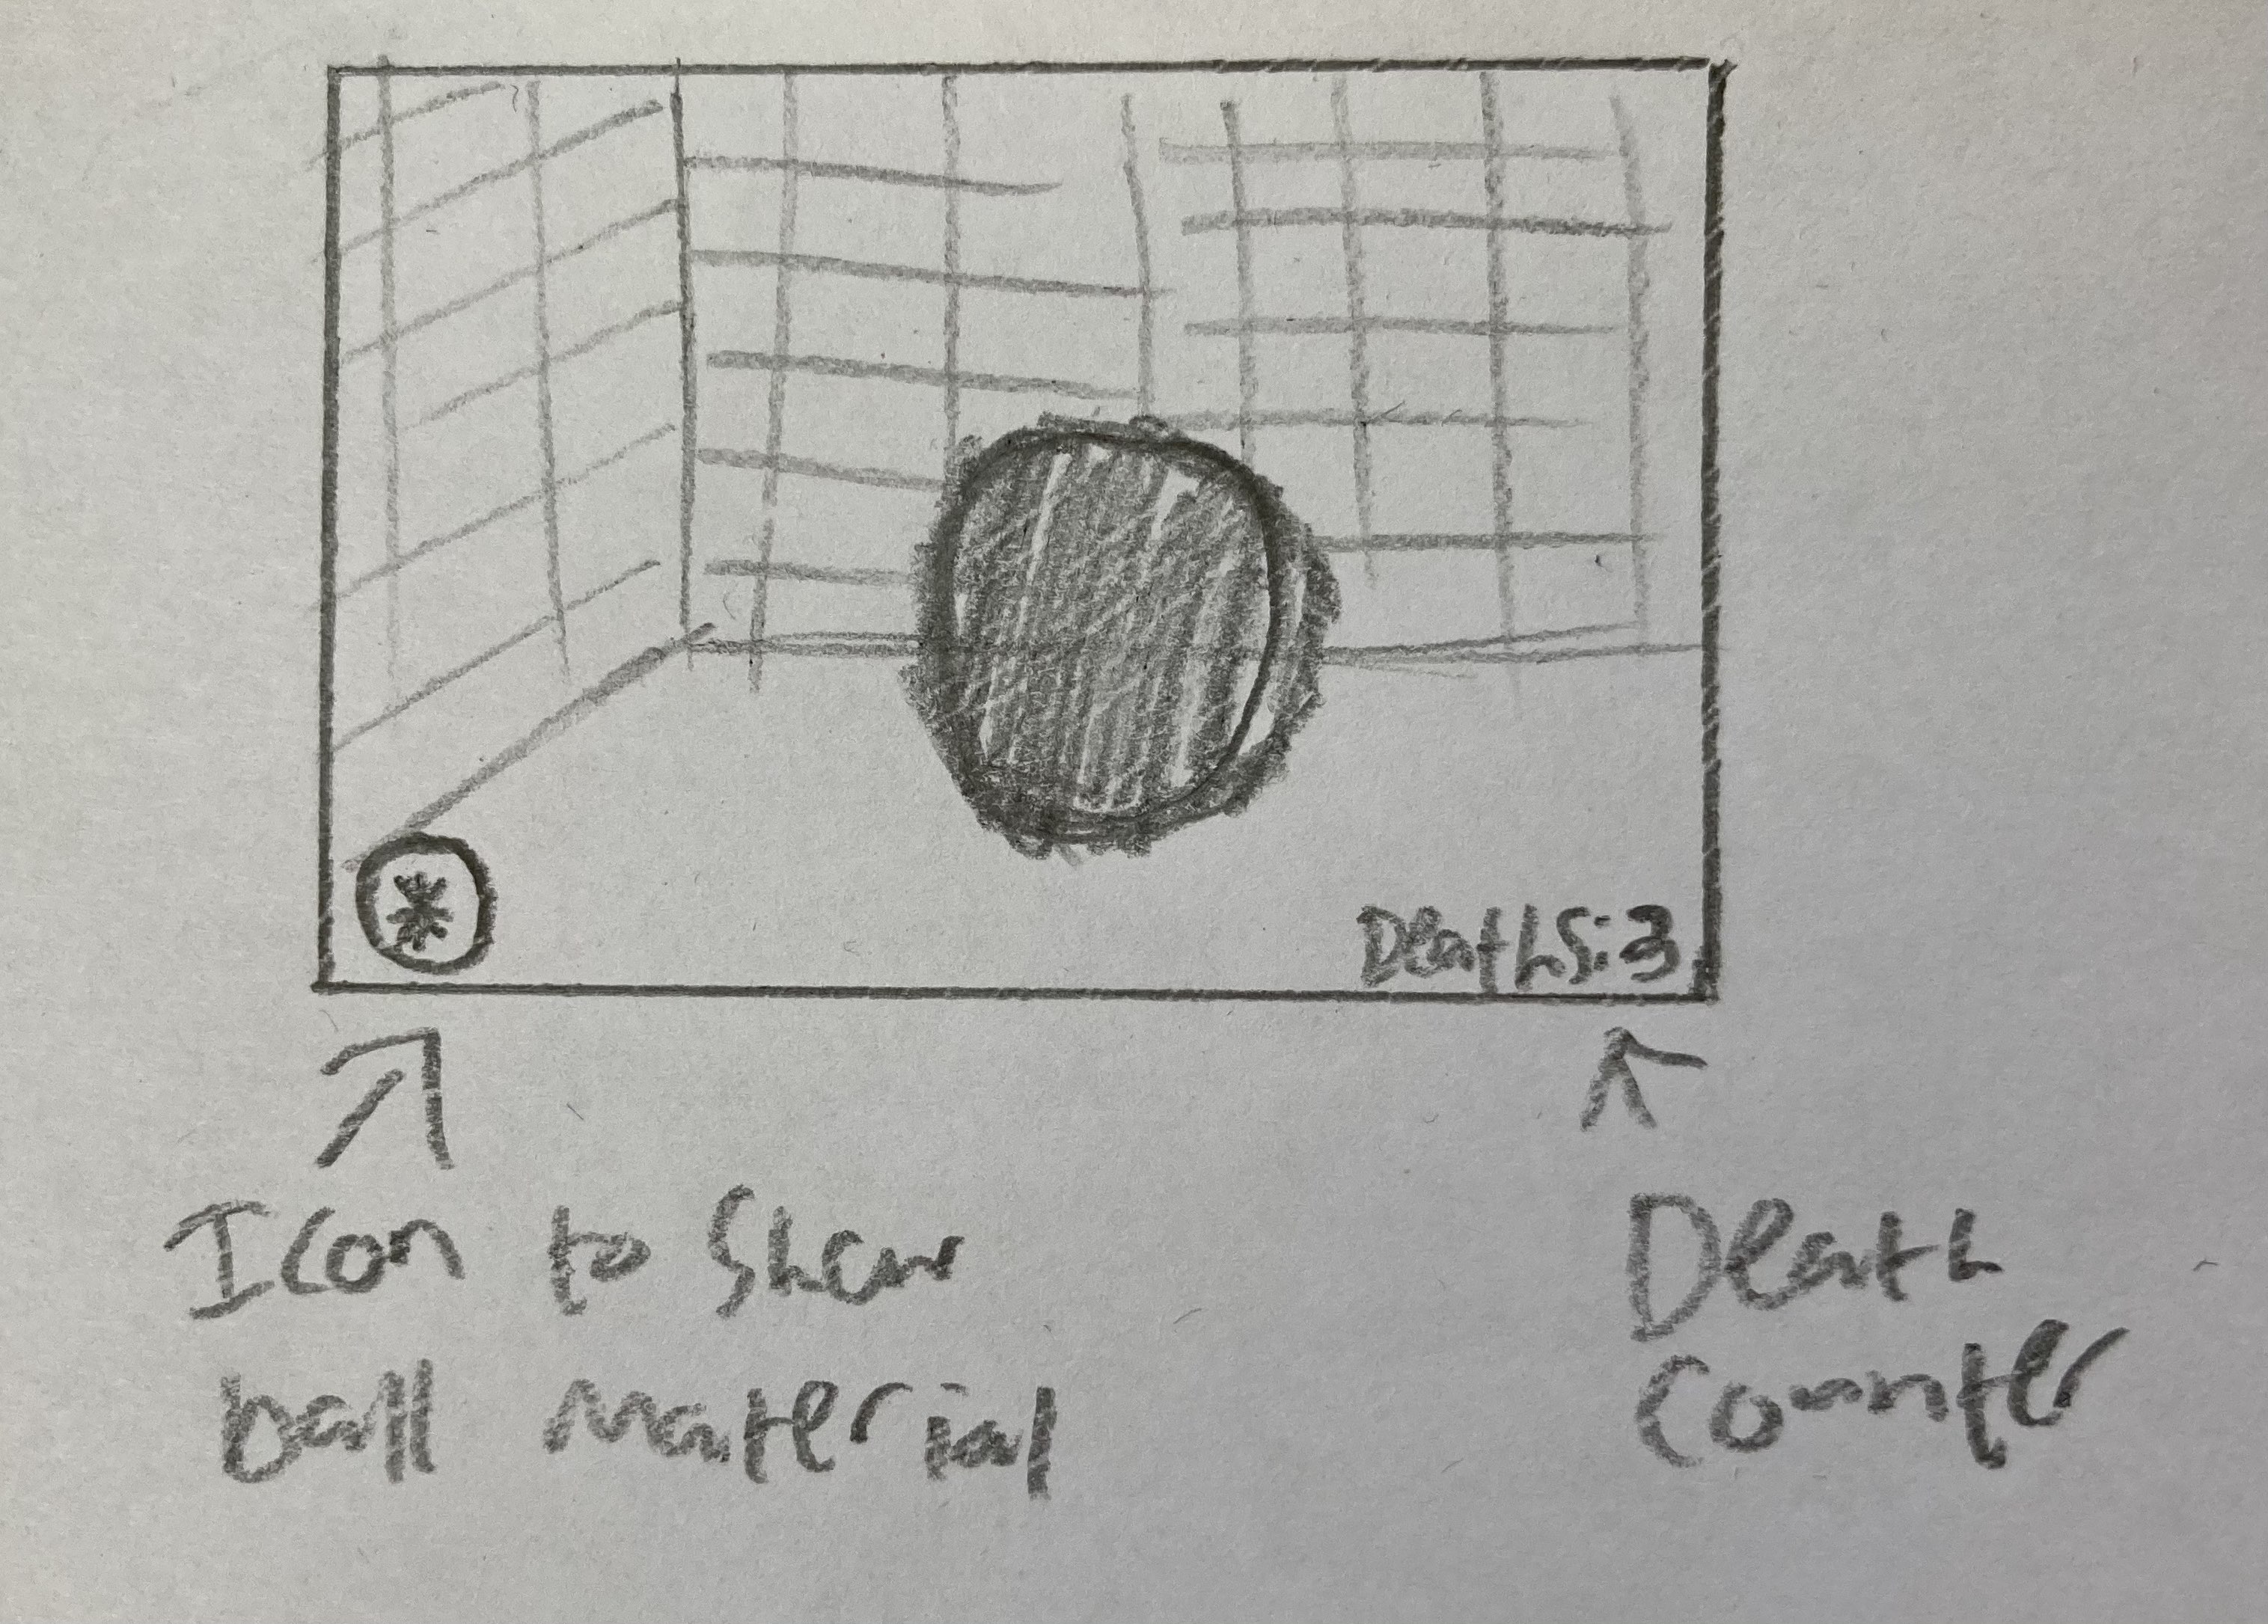 Deaths:3
Icon to Show
ball material
Death
Counter